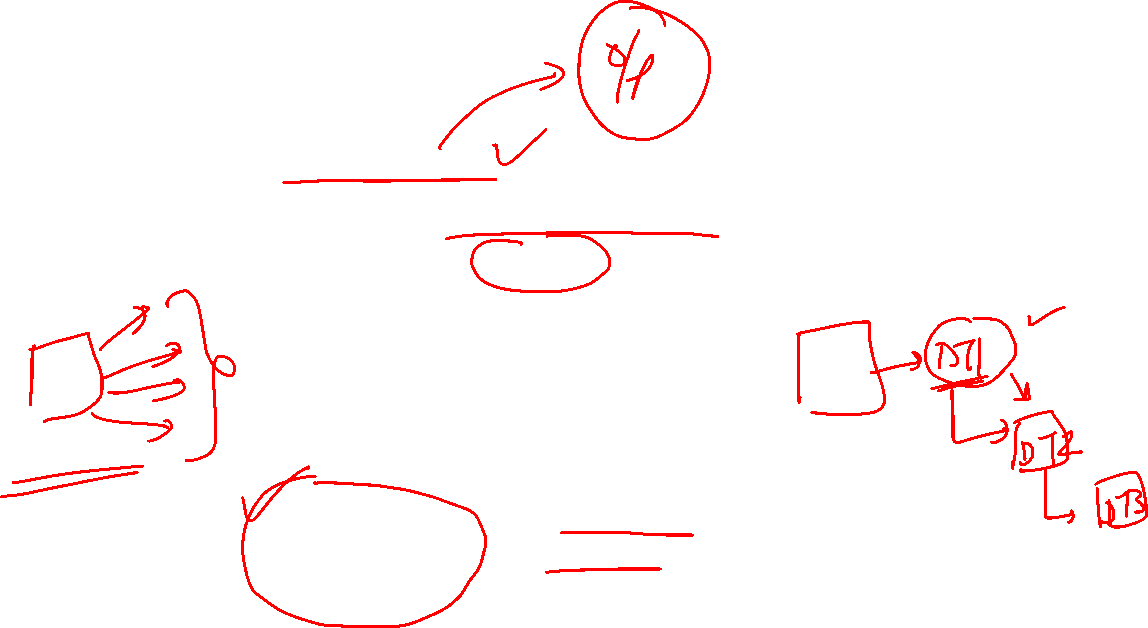 O/P
DT1
DT2
DT3